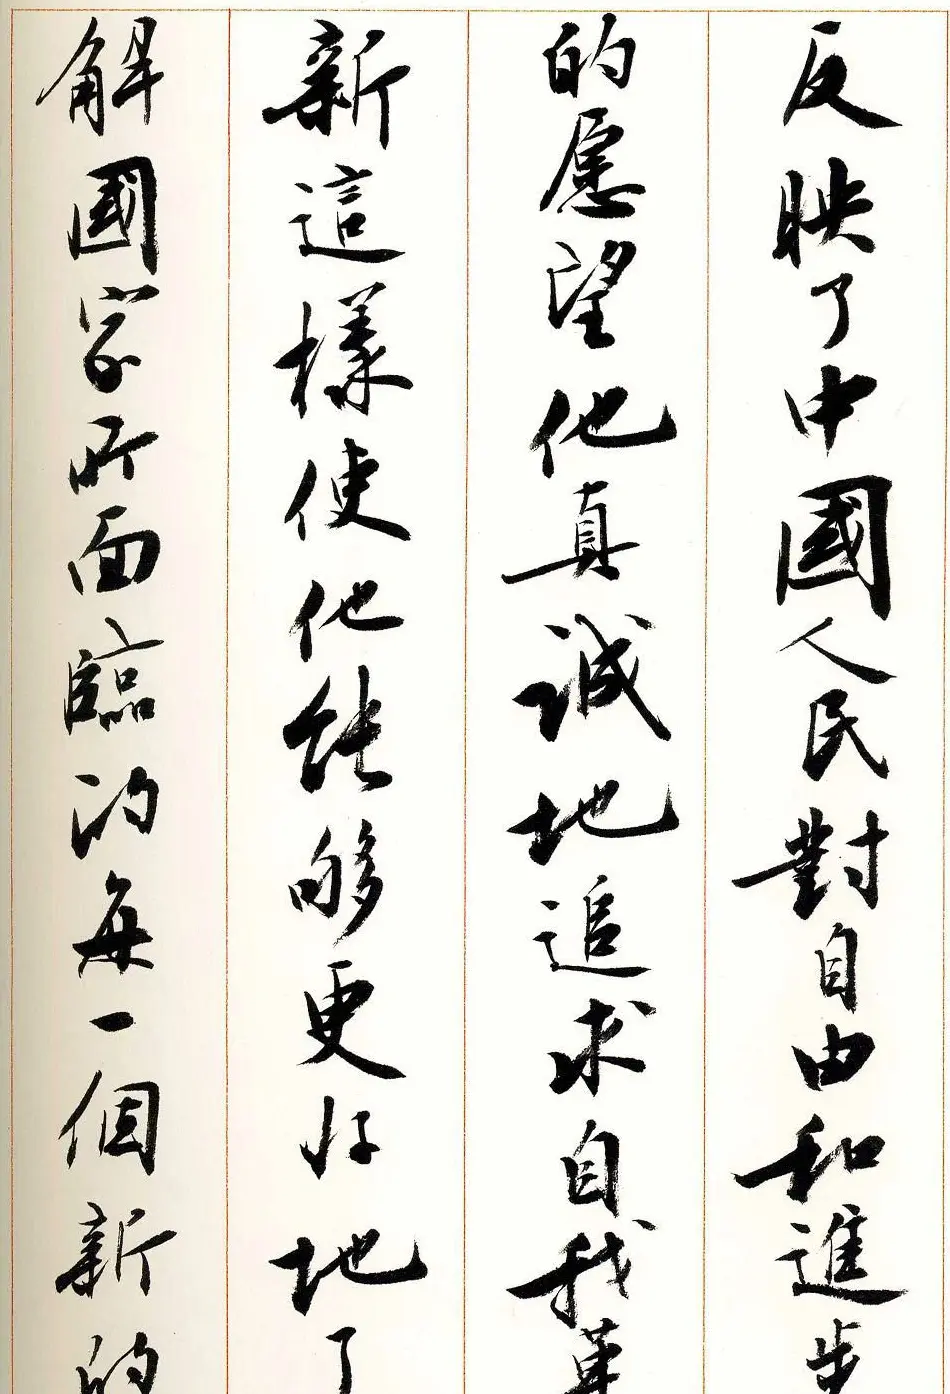 反映了中國人民對自由和進步
的愿望他真誠地追求自我革
新這樣使他能够更好地了
解國家所面臨的每一個新的